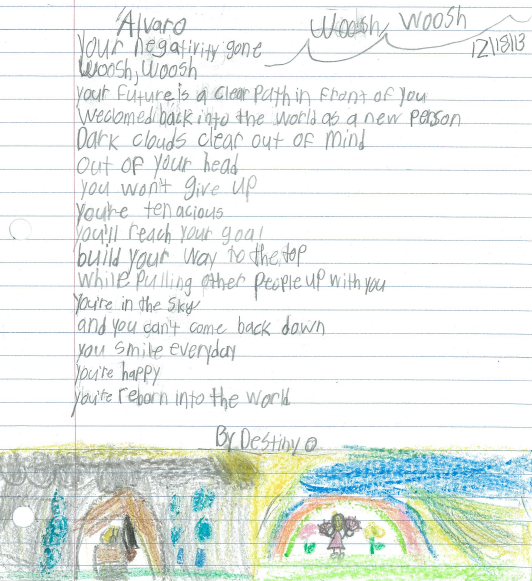 Alvaro Woosh, Woosh
12/18/13
Your negativity gone
Woosh, Woosh
your future is a clear path in front of you
Weclomed back into the world as a new person
Dark clouds clear out of mind
out of your head
you won't give up
you're tenacious
you'll reach your goal
build your way to the top
while pulling other people up with you
you're in the sky
and you can't come back down
you smile everyday
you're happy
you're reborn into the world
By Destiny